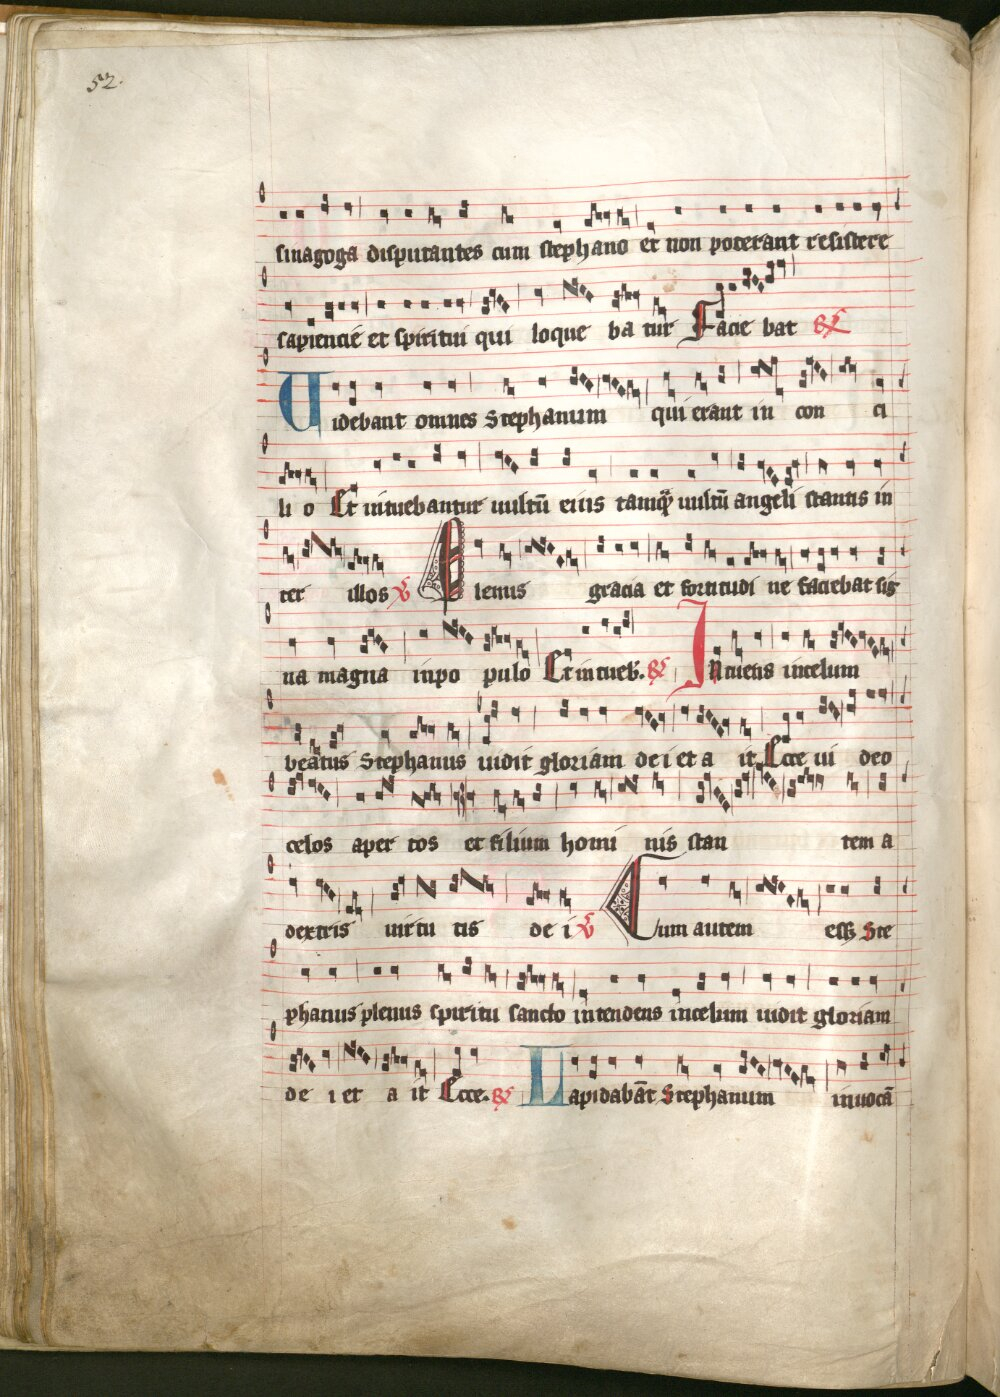 52.
sinagoga disputantes cum stephano et non poterant resistere
sapiencie et spiritui qui loque ba tur Facie bat R
Uidebant omnes Stephanum qui erant in con ci
li o Et intuebantur uultū eius tamq̄ uultū angeli stantis in
ter illos V Plenus gracia et fortitudi ne faciebat sig
na magna inpo pulo Et intueb. R Intuens incelum
beatus Stephanus uidit gloriam de i et a it Ecce ui deo
celos aper tos et filium homi nis stan tem a
dextris uirtu tis de i V Cum autem esset Ste
phanus plenus spiritu sancto intendens incelum uidit gloriam
de i et a it Ecce. R Lapidabāt Stephanum inuocā